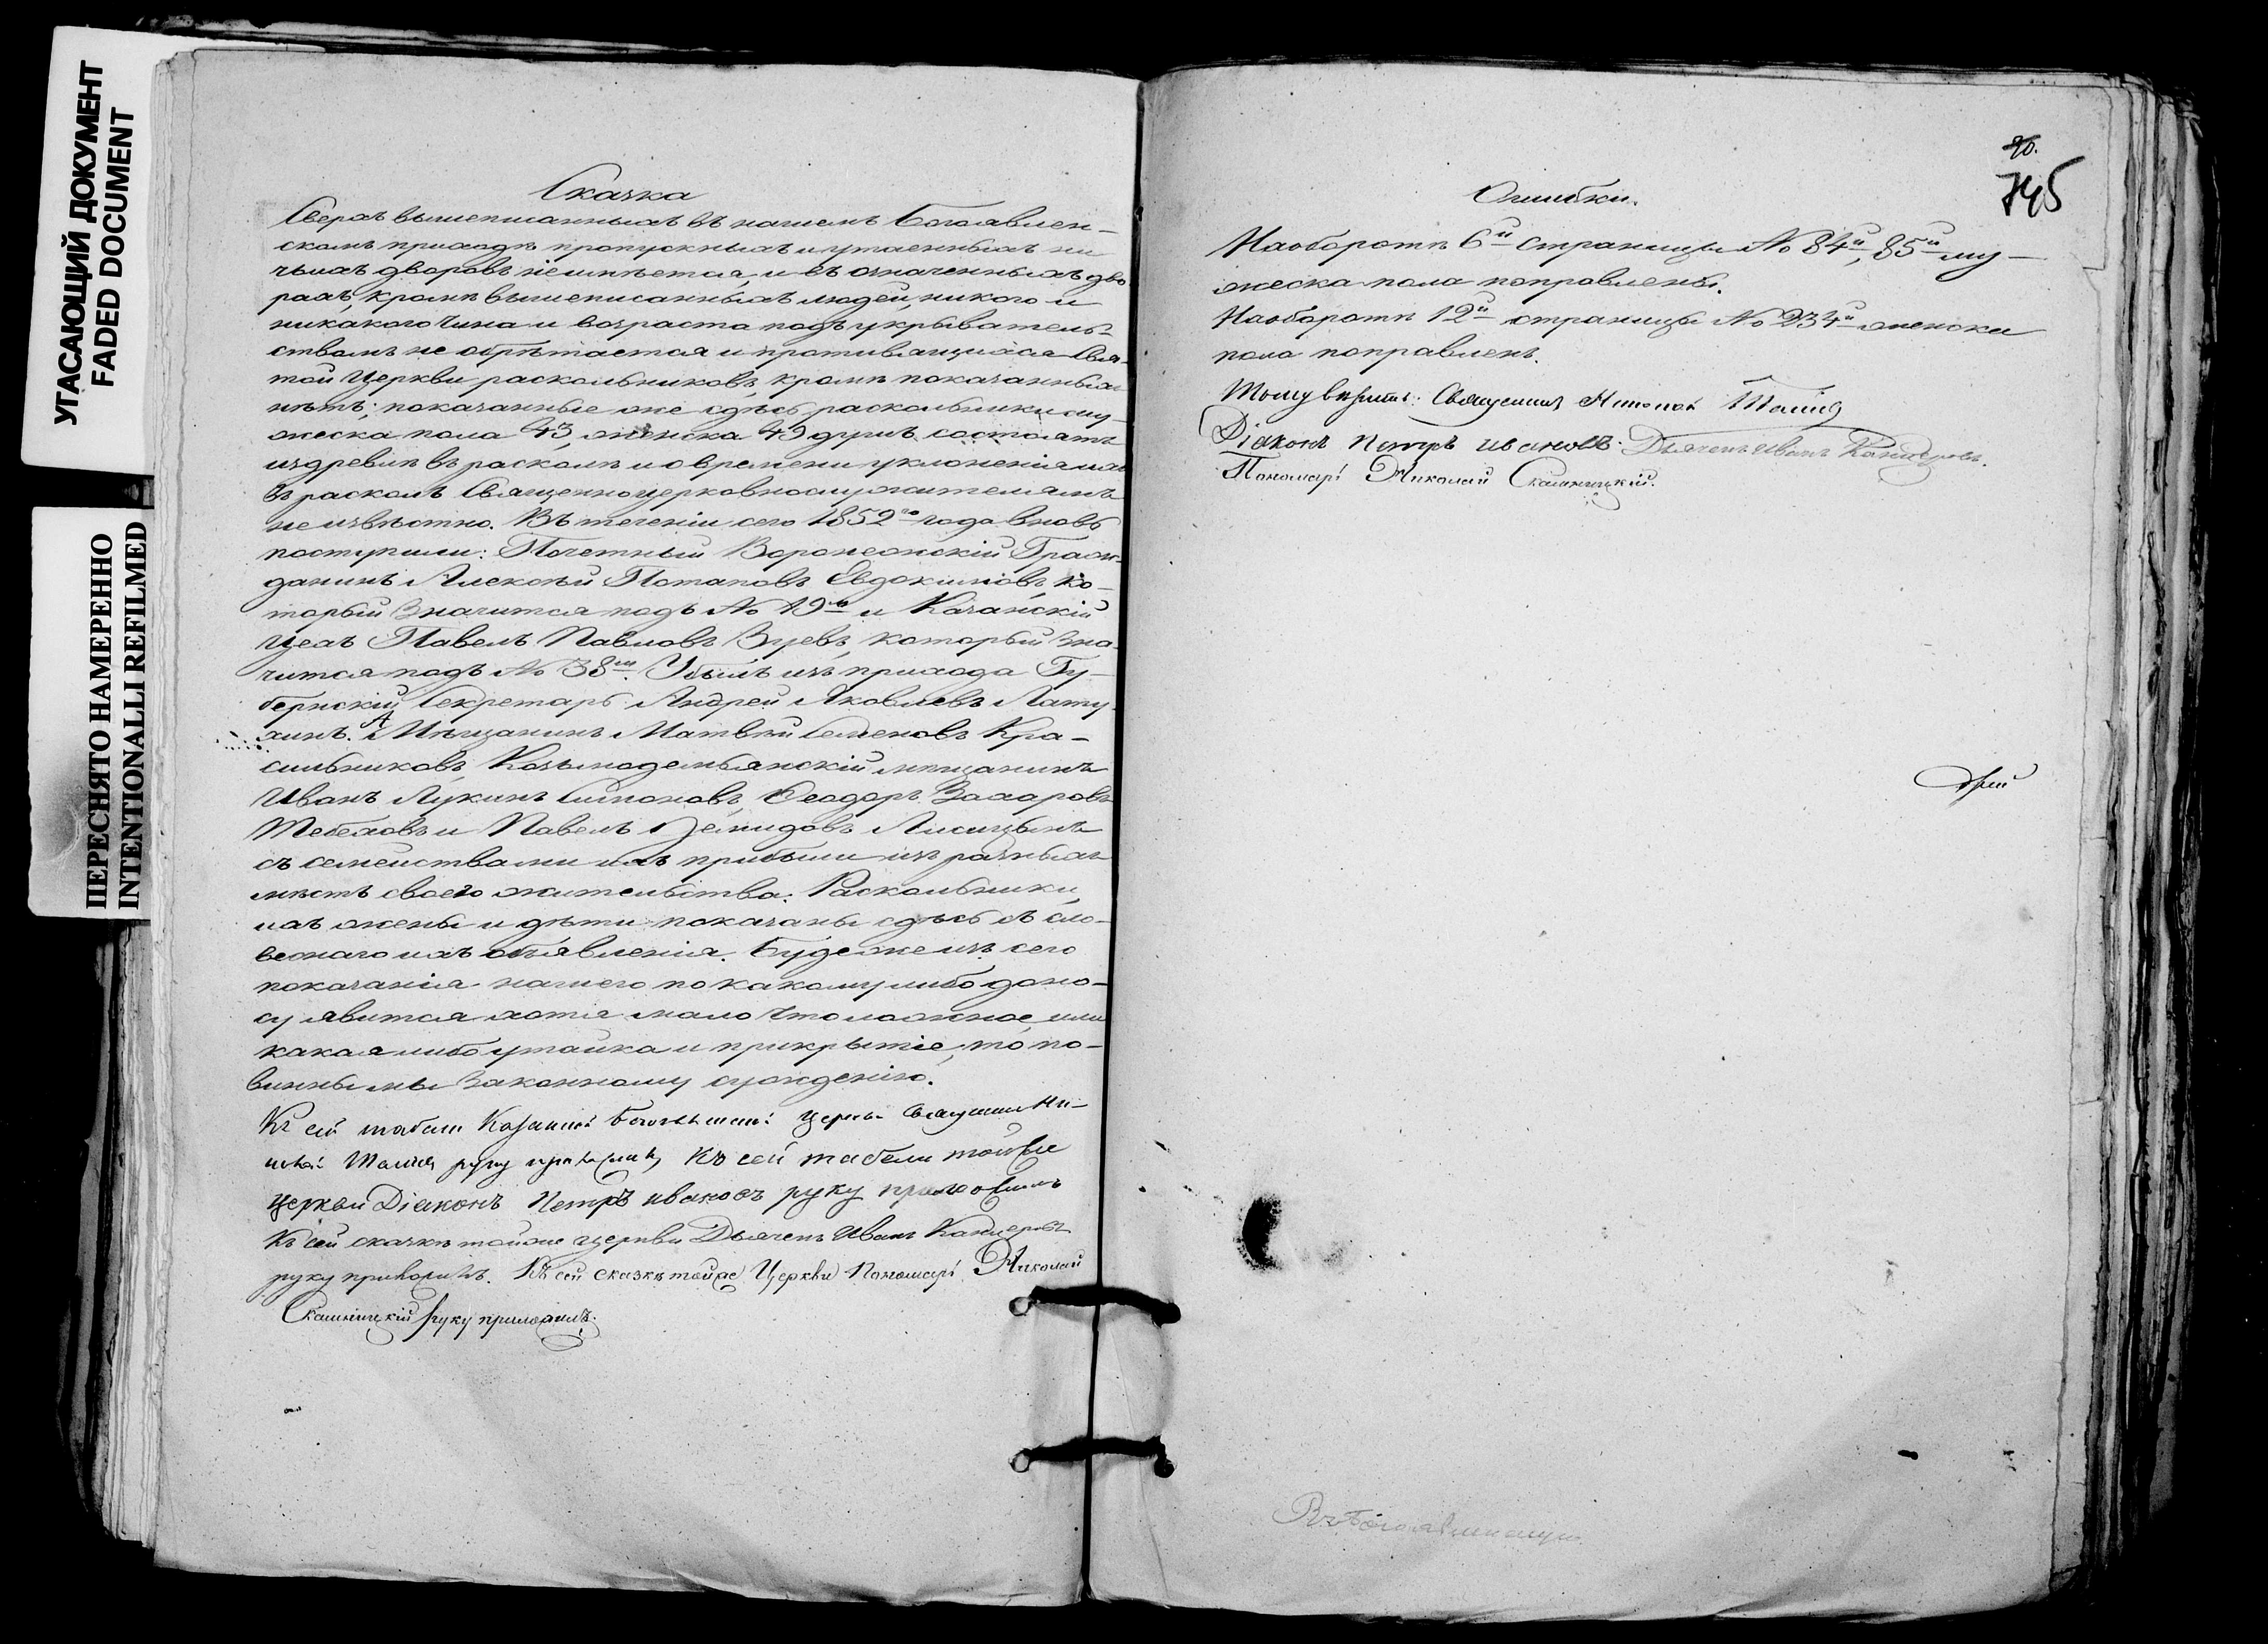 УГАСАЮЩИЙ ДОКУМЕНТ
FADED DOCUMENT
ПЕРЕСНЯТО НАМЕРЕННО
INTENTIONALLI REFILMED
Сказка
Сверхъ вышеписанныхъ въ нашемъ Богоявлен-
скомъ приходѣ пропускныхъ и утаенныхъ ни
чьихъ дворовъ неимѣется, и въ означенныхъ дво
рахъ, кромѣ вышеписанныхъ людей, никого и
никакого чина и возраста подъ укрыватель-
ствомъ не обрѣтается и противящихся Свя-
той Церкви раскольниковъ, кромѣ показанныхъ
нѣтъ; показанные же сдѣсь раскольники му-
жеска пола 43, женска 49 душъ состоятъ
издревлѣ въ расколѣ и о времени уклоненія ихъ
въ расколъ Священноцерковнослужителямъ
не извѣстно. Въ теченіи сего 1852го года вновь
поступили: Почетный Воронежскій Граж-
данинъ Алексѣй Потаповъ Евдокимовъ, ко-
торый значится подъ № 19м и Казанскій
Цеха Павелъ Павловъ Зуевъ, который зна-
чится подъ № 38м. Убылъ изъ прихода Гу-
бернскій Секретарь Андрей Яковлевъ Лату-
хинъ. А Мѣщанинъ Матвѣй Семеновъ Кра-
сильниковъ, Козьмодемьянскій мѣщанинъ
Иванъ Лукинъ Симоновъ, Ѳеодоръ Захаровъ
и Павелъ Демидовъ Лисицынъ
съ семействами ихъ прибыли изъ разныхъ
мѣстъ своего жительства. Раскольники,
ихъ жены и дѣти показаны сдѣсь съ сло-
веснаго ихъ объявленія. Буде же изъ сего
показанія нашего по какому либо доно-
су явится хотя мало что ложное, или
какая либо утайка и прикрытіе, то по-
винны мы законному сужденію.
Къ сей табели Казанской Богоявленской Церкви Священникъ
руку приложилъ, Къ сей табели той же
церкви Діаконъ Петръ Ивановъ руку приложилъ
Къ сей сказкѣ тойже церкви Дьячекъ Иванъ
руку приложилъ. Къ сей сказкѣ тойже Церкви Пономарь Николай
руку приложилъ.
90.
745
Ошибки.
Наоборотѣ 6й страницы № 84й, 85й му-
жеска пола поправлены.
Наоборотѣ 12й страницы № 234й женска
пола поправленъ.
Священникъ
Діаконъ Петръ Ивановъ. Дьячекъ Иванъ
Пономарь Николай